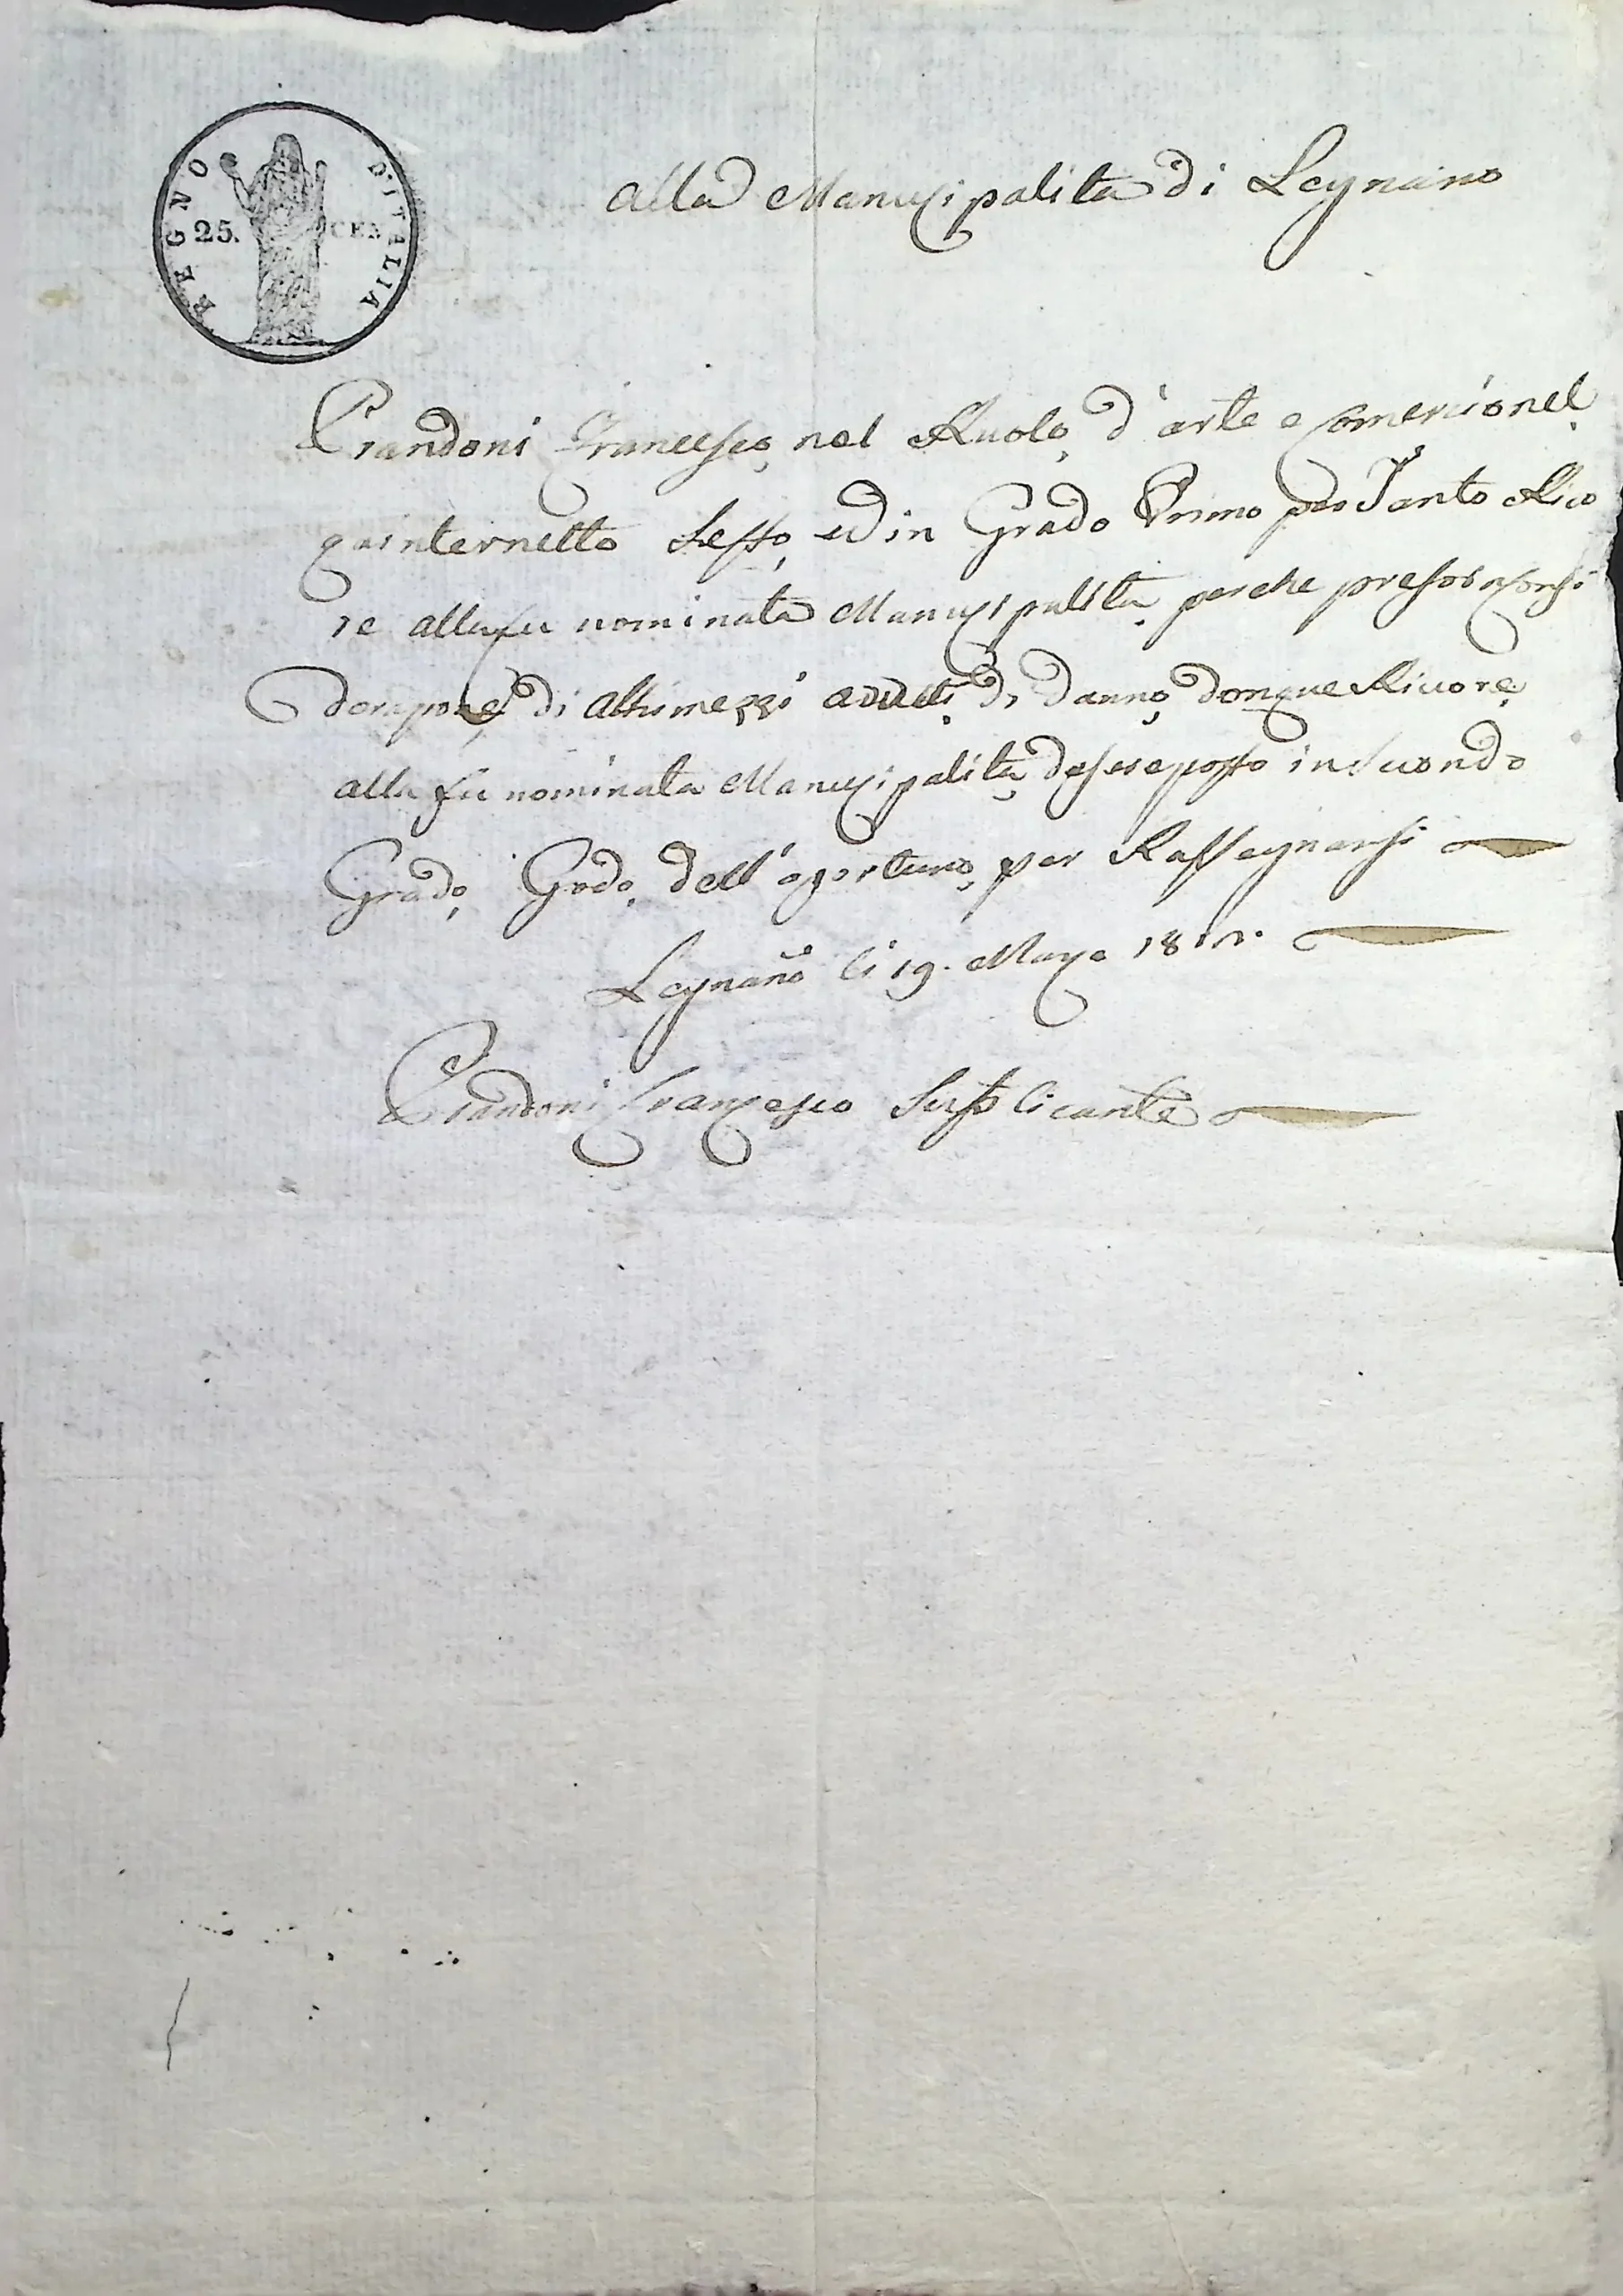 REGNO D'ITALIA
25. CEN
Alla Manucipalita di Legnano
Prandoni Francesco, nel Ruolo, d'arte e Comercio nel
quinternetto Sesto, ed in Grado Primo per Tanto Rico
re alla su nominata Manucipalita perche preso in
di Altri mezzi di danno, donque Ricore,
alla su nominata Manucipalita, desere posto in Secondo
Grado, Grado, dell'oportuno, per Rassegnarsi
Legnano li 19. Mago
Prandoni Francesco Supplicante